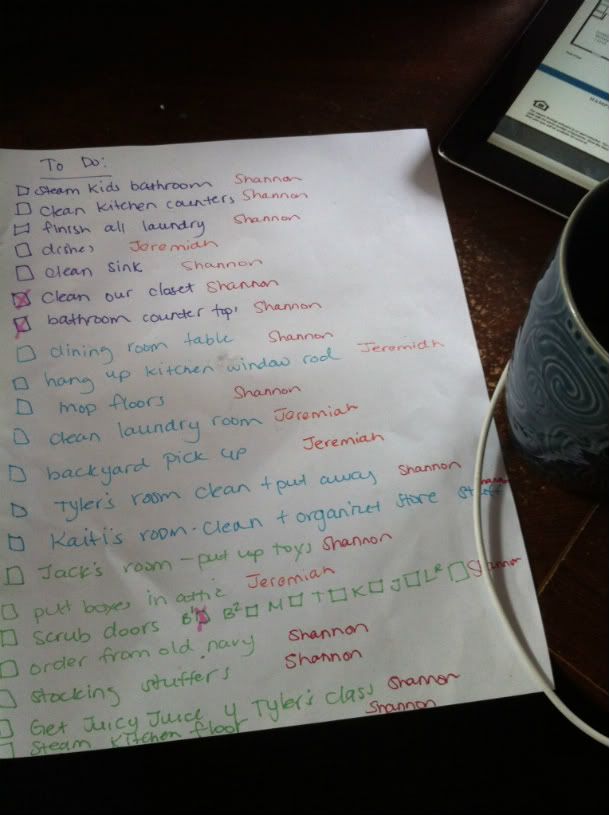 To Do:
Steam Kids bathroom Shannon
Clean Kitchen counters Shannon
finish all laundry Shannon
dishes Jeremiah
clean sink Shannon
Clean our closet Shannon
bathroom counter top Shannon
dining room table Shannon
hang up kitchen window rod Jeremiah
mop floors Shannon
clean laundry room Jeremiah
backyard pick up Jeremiah
Tyler's room clean + put away Shannon
Kaiti's room - clean + organize store stuff
Jack's room - put up toys Shannon
put boxes in attic Jeremiah
Scrub doors B¹ B² M T K J L R Shannon
order from old navy Shannon
stocking stuffers Shannon
Get Juicy Juice 4 Tyler's class Shannon
Steam Kitchen floor Shannon